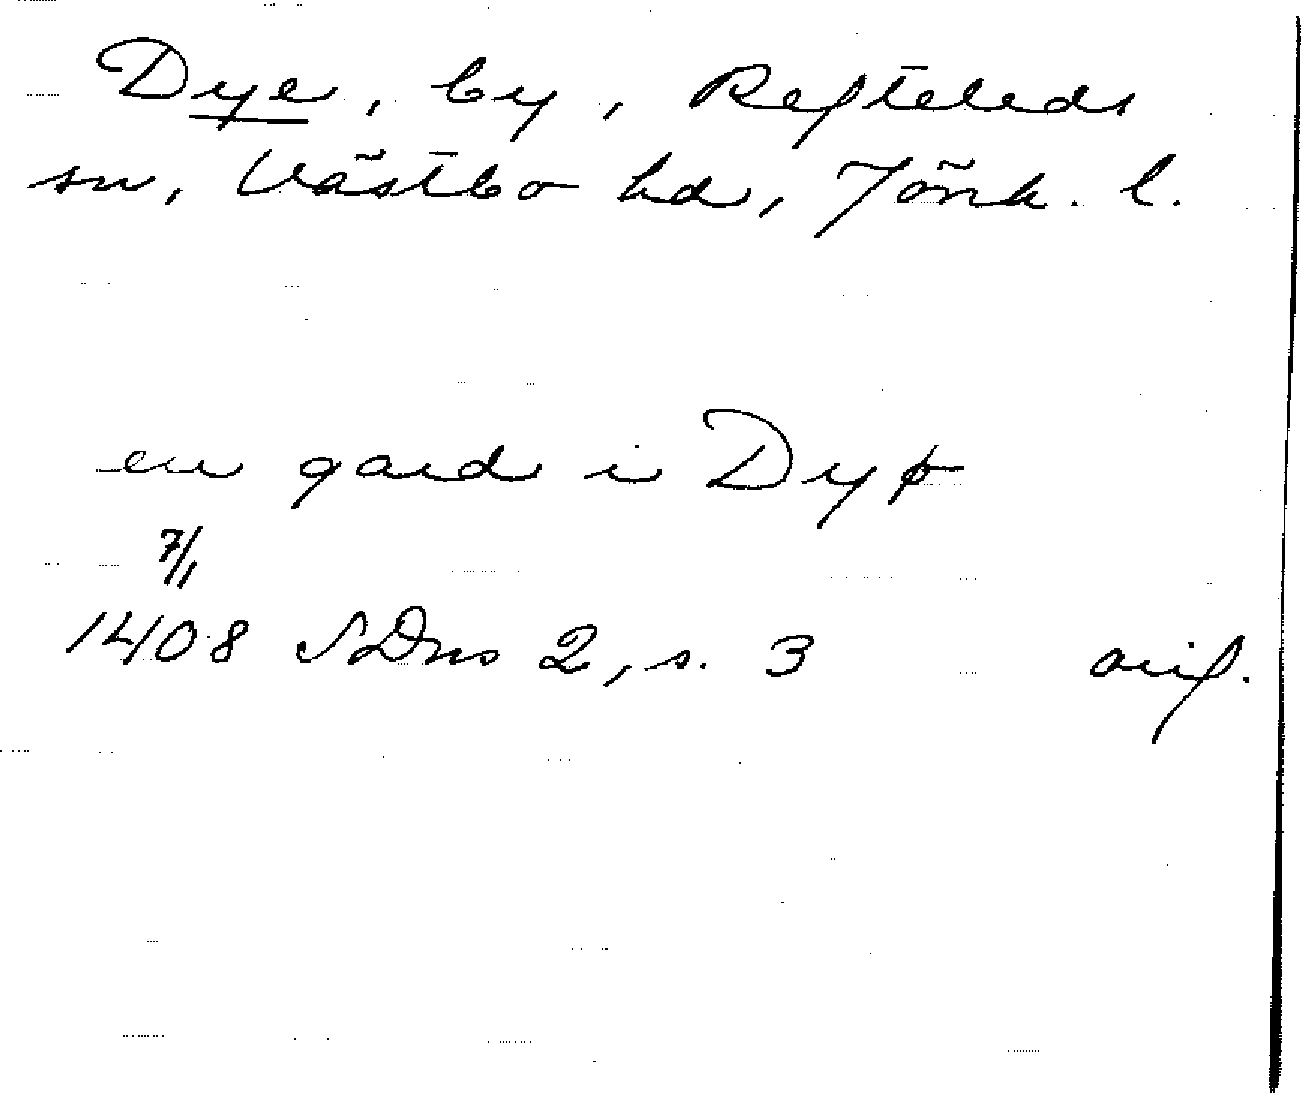 Dye, by, Refteleds
sn, Västbo hd, Jönk. l.
en gard i Dyø
7/1
1408 SDns 2, s. 3 avs.